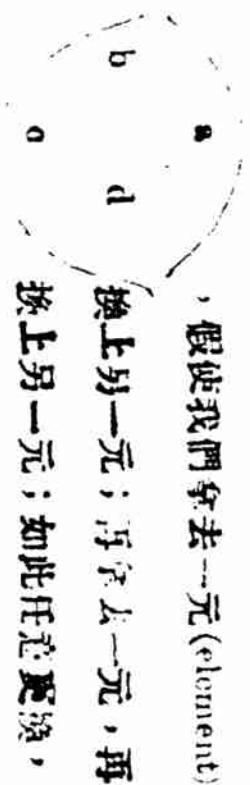 a
b d
c
，假使我們拿去一元(element)
換上另一元；再拿去一元，再
換上另一元；如此任意更換，